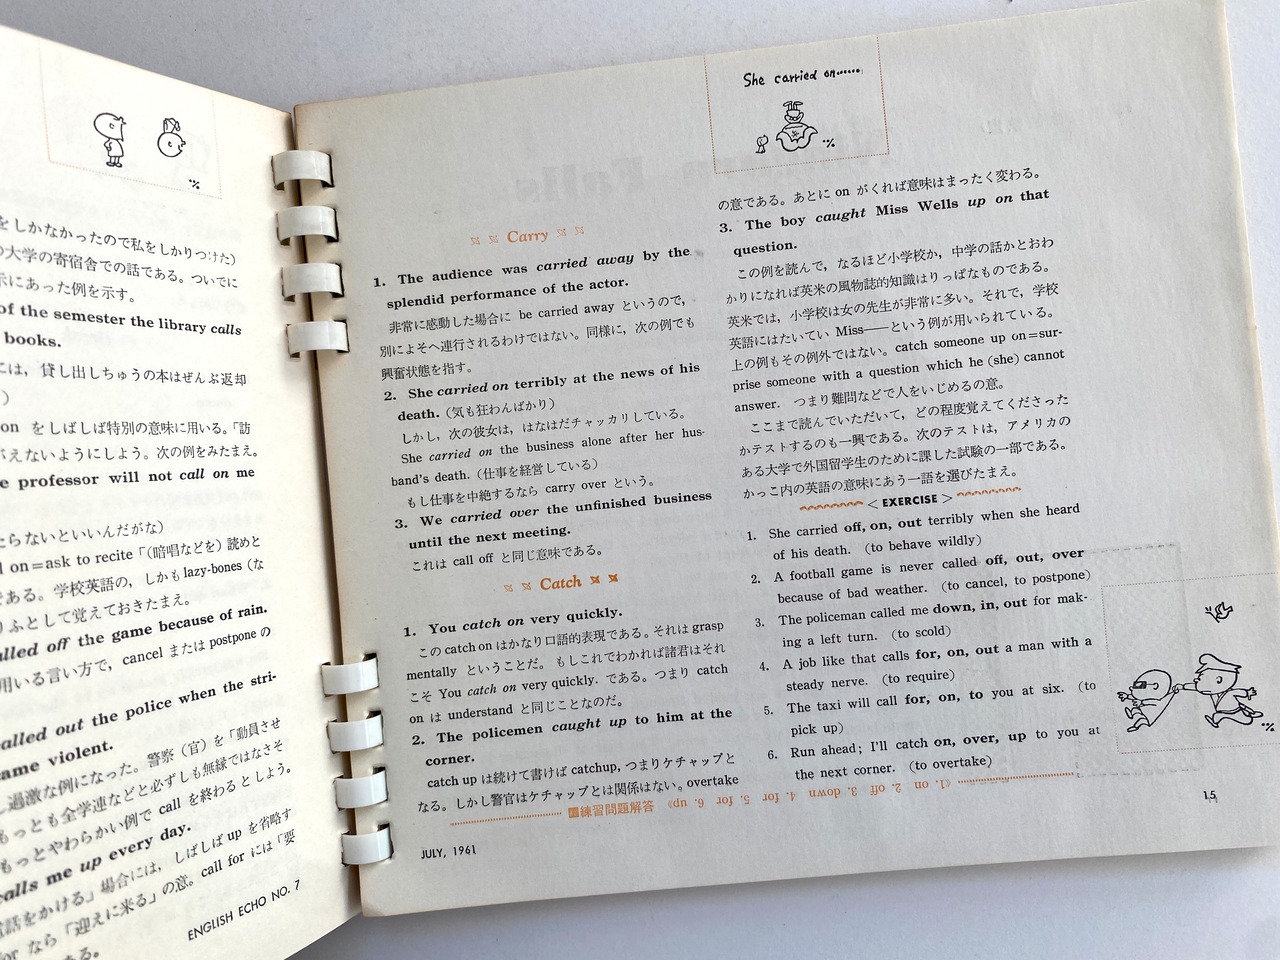 をしかなかったので私をしかりつけた)
の大学の寄宿舎での話である。ついでに
示にあった例を示す。
of the semester the library calls
books.
には，貸し出しちゅうの本はぜんぶ返却
)
on をしばしば特別の意味に用いる。「訪
がえないようにしよう。次の例をみたまえ。
e professor will not call on me
たらないといいんだがな)
l on=ask to recite「(暗唱などを) 読めと
である。学校英語の，しかも lazy-bones (な
りふとして覚えておきたまえ。
alled off the game because of rain.
用いる言い方で，cancel または postpone の
alled out the police when the stri-
ame violent.
過激な例になった。警察（官）を「動員させ
もっとも全学連などと必ずしも無縁ではなさそ
もっとやわらかい例で call を終わるとしよう。
calls me up every day.
電話をかける」場合には，しばしば up を省略す
for なら「迎えに来る」の意。call for には「要
ある。
ENGLISH ECHO NO. 7
She carried on......
Carry
1. The audience was carried away by the
splendid performance of the actor.
非常に感動した場合に be carried away というので，
別によそへ連行されるわけではない。同様に，次の例でも
興奮状態を指す。
2. She carried on terribly at the news of his
death. (気も狂わんばかり)
しかし，次の彼女は，はなはだチャッカリしている。
She carried on the business alone after her hus-
band's death. (仕事を経営している)
もし仕事を中絶するなら carry over という。
3. We carried over the unfinished business
until the next meeting.
これは call off と同じ意味である。
Catch
1. You catch on very quickly.
この catch on はかなり口語的表現である。それは grasp
mentally ということだ。もしこれでわかれば諸君はそれ
こそ You catch on very quickly. である。つまり catch
on は understand と同じことなのだ。
2. The policemen caught up to him at the
corner.
catch up は続けて書けば catchup, つまりケチャップと
なる。しかし警官はケチャップとは関係はない。overtake
の意である。あとに on がくれば意味はまったく変わる。
3. The boy caught Miss Wells up on that
question.
この例を読んで，なるほど小学校か，中学の話かとおわ
かりになれば英米の風物誌的知識はりっぱなものである。
英米では，小学校は女の先生が非常に多い。それで，学校
英語にはたいてい Miss——という例が用いられている。
上の例もその例外ではない。catch someone up on=sur-
prise someone with a question which he (she) cannot
answer. つまり難問などで人をいじめるの意。
ここまで読んでいただいて，どの程度覚えてくださった
かテストするのも一興である。次のテストは，アメリカの
ある大学で外国留学生のために課した試験の一部である。
かっこ内の英語の意味にあう一語を選びたまえ。
< EXERCISE >
1. She carried off, on, out terribly when she heard
of his death. (to behave wildly)
2. A football game is never called off, out, over
because of bad weather. (to cancel, to postpone)
3. The policeman called me down, in, out for mak-
ing a left turn. (to scold)
4. A job like that calls for, on, out a man with a
steady nerve. (to require)
5. The taxi will call for, on, to you at six. (to
pick up)
6. Run ahead; I'll catch on, over, up to you at
the next corner. (to overtake)
練習問題解答 《1. on 2. off 3. down 4. for 5. for 6. up》
JULY, 1961
15